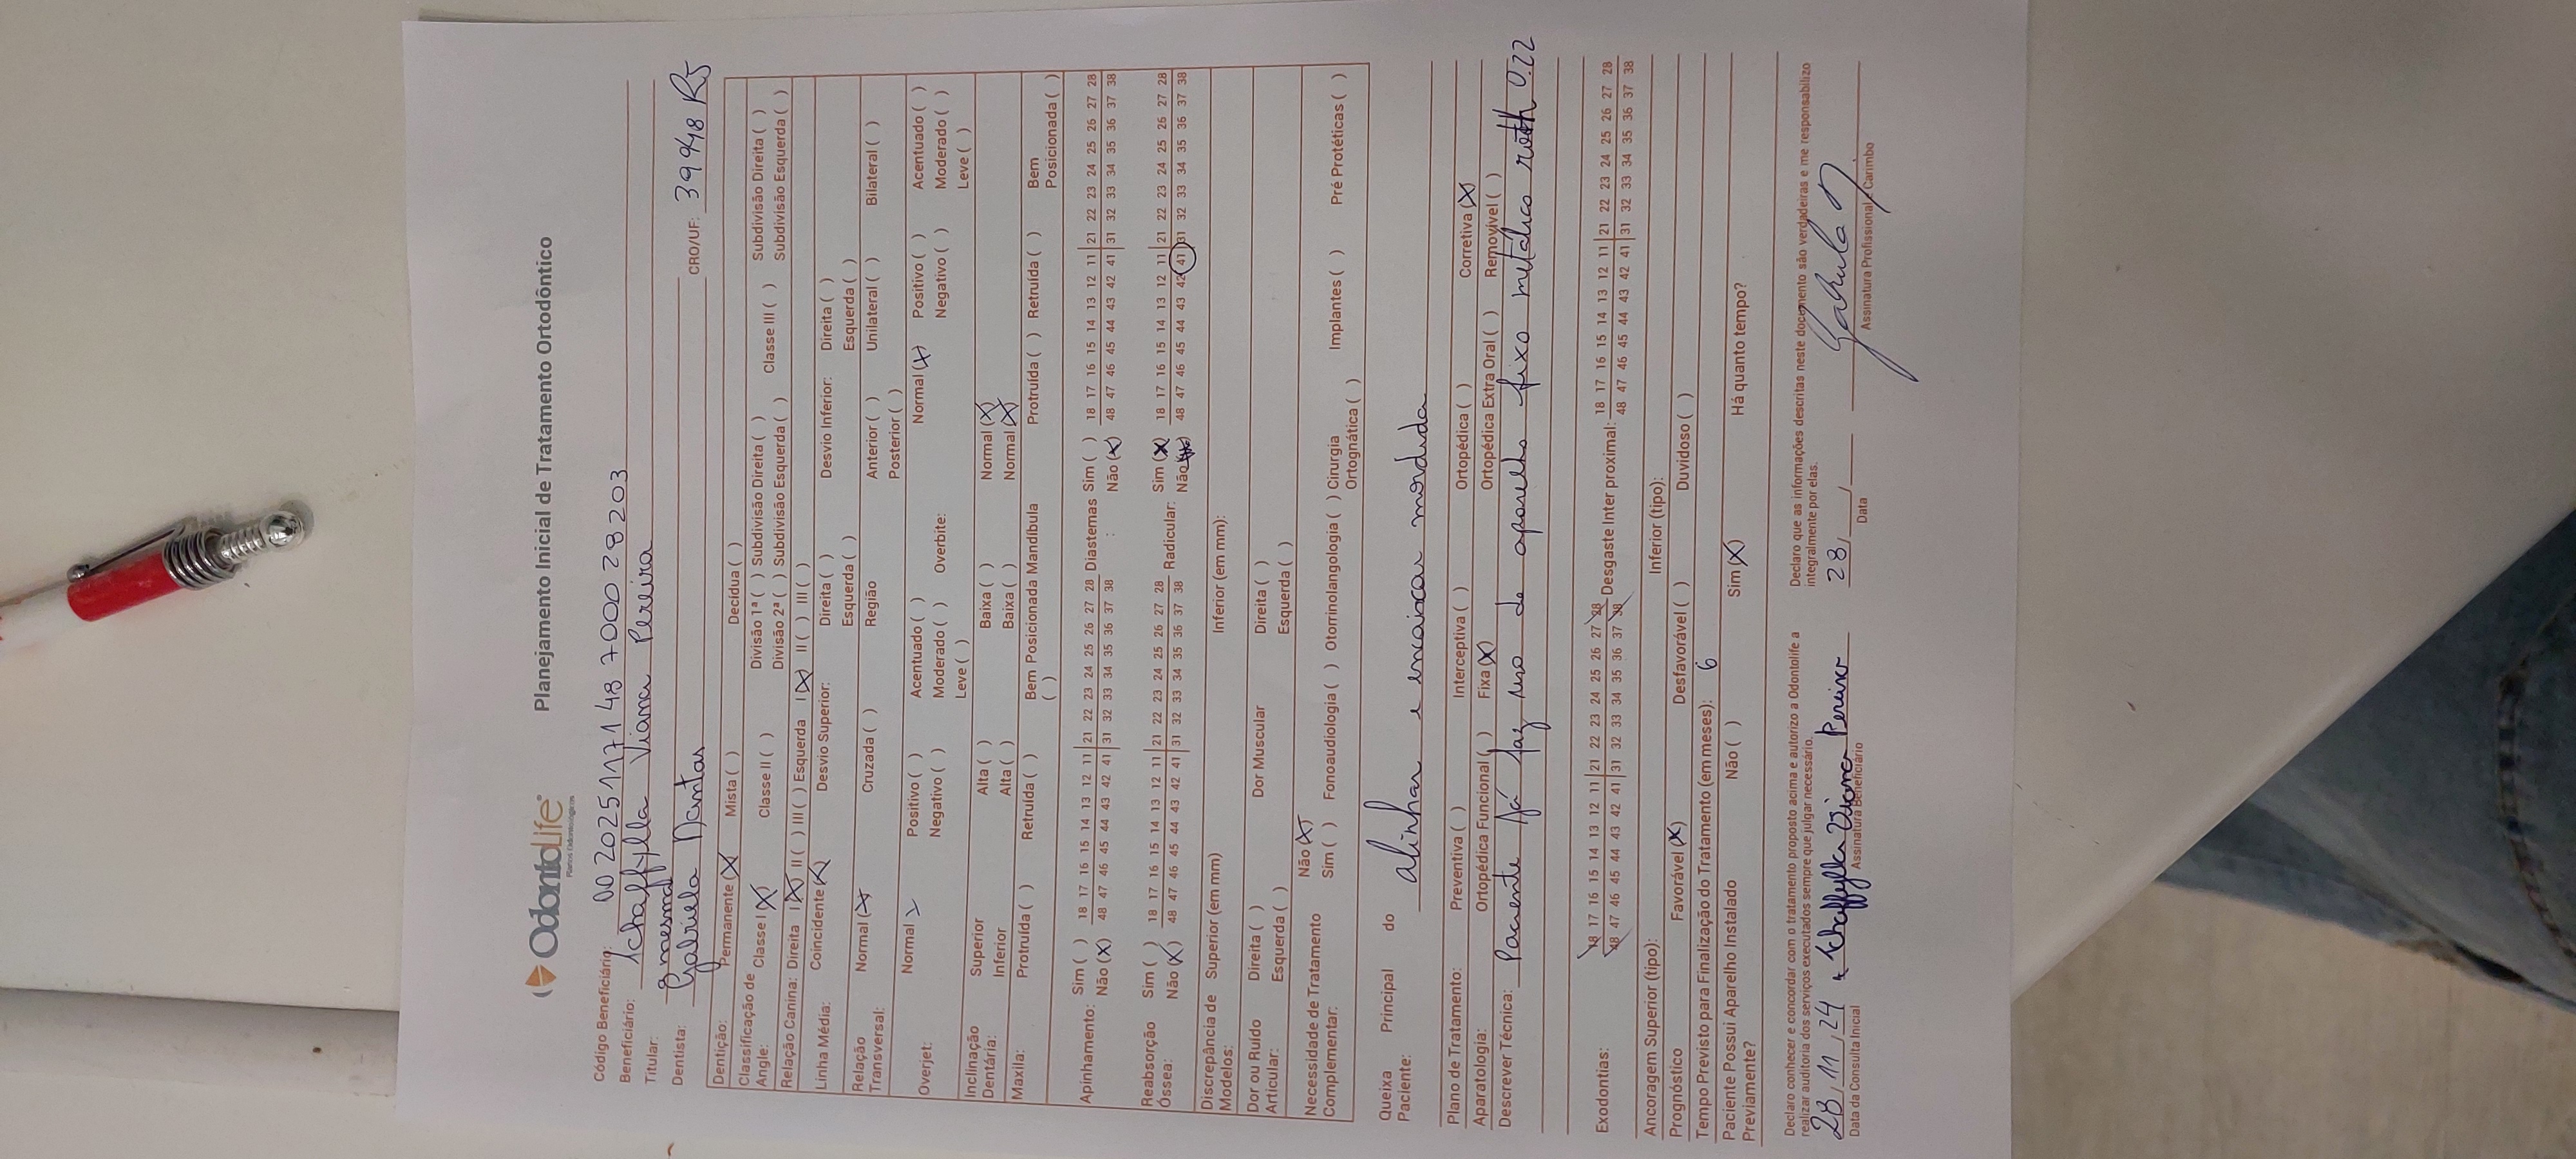 OdontoLife
Planos Odontológicos
Planejamento Inicial de Tratamento Ortodôntico
Código Beneficiário: 00 2025 1171 48 70000 28203
Beneficiário: Ichaffylla Viana Pereira
Titular: O mesmo
Dentista: Gabriela Dantas CRO/UF: 39948 RJ
Dentição: Permanente (X) Mista ( ) Decídua ( )
Classificação de Angle: Classe I (X) Classe II ( ) Divisão 1ª ( ) Subdivisão Direita ( ) Classe III ( ) Subdivisão Direita ( )
Divisão 2ª ( ) Subdivisão Esquerda ( ) Subdivisão Esquerda ( )
Relação Canina: Direita I (X) II ( ) III ( ) Esquerda I (X) II ( ) III ( )
Linha Média: Coincidente (X) Desvio Superior: Direita ( ) Desvio Inferior: Direita ( )
Esquerda ( ) Esquerda ( )
Relação Transversal: Normal (X) Cruzada ( ) Região Anterior ( ) Unilateral ( ) Bilateral ( )
Posterior ( )
Overjet: Normal Positivo ( ) Acentuado ( ) Overbite: Normal (X) Positivo ( ) Acentuado ( )
Negativo ( ) Moderado ( ) Negativo ( ) Moderado ( )
Leve ( ) Leve ( )
Inclinação Dentária: Superior Alta ( ) Baixa ( ) Normal (X)
Inferior Alta ( ) Baixa ( ) Normal (X)
Maxila: Protruída ( ) Retruída ( ) Bem Posicionada ( ) Mandíbula Protruída ( ) Retruída ( ) Bem Posicionada ( )
Apinhamento: Sim ( ) 18 17 16 15 14 13 12 11 | 21 22 23 24 25 26 27 28 Diastemas : Sim ( ) 18 17 16 15 14 13 12 11 | 21 22 23 24 25 26 27 28
Não (X) 48 47 46 45 44 43 42 41 | 31 32 33 34 35 36 37 38 Não (X) 48 47 46 45 44 43 42 41 | 31 32 33 34 35 36 37 38
Reabsorção Óssea: Sim ( ) 18 17 16 15 14 13 12 11 | 21 22 23 24 25 26 27 28 Radicular: Sim (X) 18 17 16 15 14 13 12 11 | 21 22 23 24 25 26 27 28
Não (X) 48 47 46 45 44 43 42 41 | 31 32 33 34 35 36 37 38 Não 48 47 46 45 44 43 42 41 | 31 32 33 34 35 36 37 38
Discrepância de Modelos: Superior (em mm) Inferior (em mm):
Dor ou Ruído Articular: Direita ( ) Dor Muscular Direita ( )
Esquerda ( ) Esquerda ( )
Necessidade de Tratamento Complementar: Não (X)
Sim ( ) Fonoaudiologia ( ) Otorrinolangologia ( ) Cirurgia Ortognática ( ) Implantes ( ) Pré Protéticas ( )
Queixa Principal do Paciente: alinhar e encaixar mordida
Plano de Tratamento: Preventiva ( ) Interceptiva ( ) Ortopédica ( ) Corretiva (X)
Aparatologia: Ortopédica Funcional ( ) Fixa (X) Ortopédica Extra Oral ( ) Removível ( )
Descrever Técnica: Paciente já faz uso de aparelho fixo metálico roth 0.22
Exodontias: 18 17 16 15 14 13 12 11 | 21 22 23 24 25 26 27 28 Desgaste Inter proximal: 18 17 16 15 14 13 12 11 | 21 22 23 24 25 26 27 28
48 47 46 45 44 43 42 41 | 31 32 33 34 35 36 37 38 48 47 46 45 44 43 42 41 | 31 32 33 34 35 36 37 38
Ancoragem Superior (tipo): Inferior (tipo):
Prognóstico Favorável (X) Desfavorável ( ) Duvidoso ( )
Tempo Previsto para Finalização do Tratamento (em meses): 6
Paciente Possui Aparelho Instalado Previamente? Não ( ) Sim (X) Há quanto tempo?
Declaro conhecer e concordar com o tratamento proposto acima e autorizo a Odontolife a
realizar auditoria dos serviços executados sempre que julgar necessário.
Declaro que as informações descritas neste documento são verdadeiras e me responsabilizo
integralmente por elas.
28/11/24 Ichaffylla Viana Pereira 28/ / Gabriela D
Data da Consulta Inicial Assinatura Beneficiário Data Assinatura Profissional / Carimbo